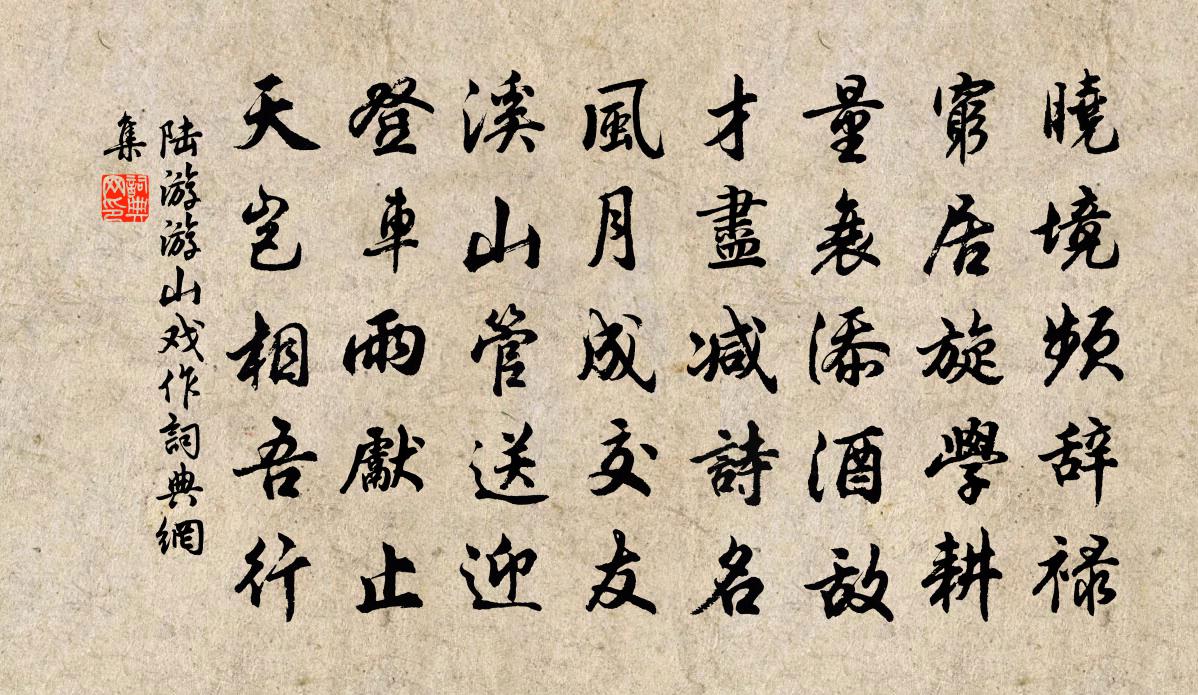 曉境頻辞禄
窮居旋學耕
量衰添酒敵
才盡減詩名
風月成交友
溪山管送迎
登車雨獻止
天豈相吾行
陆游游山戏作詞典網
集
詞典網印